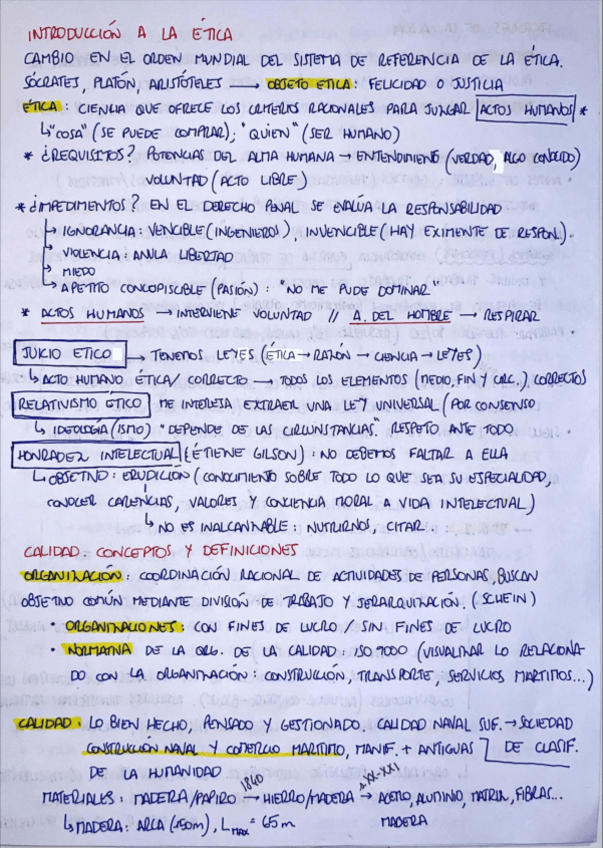 INTRODUCCIÓN A LA ÉTICA
CAMBIO EN EL ORDEN MUNDIAL DEL SISTEMA DE REFERENCIA DE LA ÉTICA.
SÓCRATES, PLATÓN, ARISTÓTELES → OBJETO ETICA: FELICIDAD O JUSTICIA
ÉTICA: CIENCIA QUE OFRECE LOS CRITERIOS RACIONALES PARA JUZGAR ACTOS HUMANOS *
↳ "COSA" (SE PUEDE COMPRAR); "QUIEN" (SER HUMANO)
* ¿REQUISITOS? POTENCIAS DEL ALMA HUMANA → ENTENDIMIENO (VERDAD, ALGO CONOCIDO)
VOLUNTAD (ACTO LIBRE)
* ¿IMPEDIMENTOS? EN EL DERECHO PENAL SE EVALÚA LA RESPONSABILIDAD
↳ IGNORANCIA: VENCIBLE (INGENIEROS), INVENCIBLE (HAY EXIMENTE DE RESPON.)
↳ VIOLENCIA: ANULA LIBERTAD
↳ MIEDO
↳ APETITO CONCUPISCIBLE (PASIÓN): "NO ME PUDE DOMINAR"
* ACTOS HUMANOS → INTERVIENE VOLUNTAD // A. DEL HOMBRE → RESPIRAR
JUICIO ETICO → TENEMOS LEYES (ÉTICA → RAZÓN → CIENCIA → LEYES)
↳ ACTO HUMANO ÉTICA/CORRECTO → TODOS LOS ELEMENTOS (MEDIO, FIN Y CIRC.) CORRECTOS
RELATIVISMO ÉTICO ME INTERESA EXTRAER UNA LEY UNIVERSAL (POR CONSENSO
↳ IDEOLOGÍA (ISMO) "DEPENDE DE LAS CIRCUNSTANCIAS. RESPETO ANTE TODO
HONRADEZ INTELECTUAL (ETIENE GILSON): NO DEBEMOS FALTAR A ELLA
↳ OBJETIVO: ERUDICIÓN (CONOCIMIENTO SOBRE TODO LO QUE SEA SU ESPECIALIDAD,
CONOCER CARENCIAS, VALORES Y CONCIENCIA MORAL A VIDA INTELECTUAL)
↳ NO ES INALCANZABLE: NUTRIRNOS, CITAR...
CALIDAD: CONCEPTOS Y DEFINICIONES
ORGANIZACIÓN: COORDINACIÓN RACIONAL DE ACTIVIDADES DE PERSONAS, BUSCAN
OBJETIVO COMÚN MEDIANTE DIVISIÓN DE TRABAJO Y JERARQUIZACIÓN. (SCHEIN)
• ORGANIZACIONES: CON FINES DE LUCRO / SIN FINES DE LUCRO
• NORMATIVA DE LA ORG. DE LA CALIDAD: ISO TODO (VISUALIZAR LO RELACIONA-
DO CON LA ORGANIZACIÓN: CONSTRUCCIÓN, TRANSPORTE, SERVICIOS MARÍTIMOS...)
CALIDAD: LO BIEN HECHO, PENSADO Y GESTIONADO. CALIDAD NAVAL SUF. → SOCIEDAD
CONSTRUCCIÓN NAVAL Y COMERCIO MARITIMO, MANIF. + ANTIGUAS DE CLASIF.
DE LA HUMANIDAD
MATERIALES: MADERA/PAPIRO 1860 → HIERRO/MADERA XX-XXI → ACERO, ALUMINO, MATRIX, FIBRAS...
↳ MADERA: ARCA (150m), L MAX = 65m MADERA